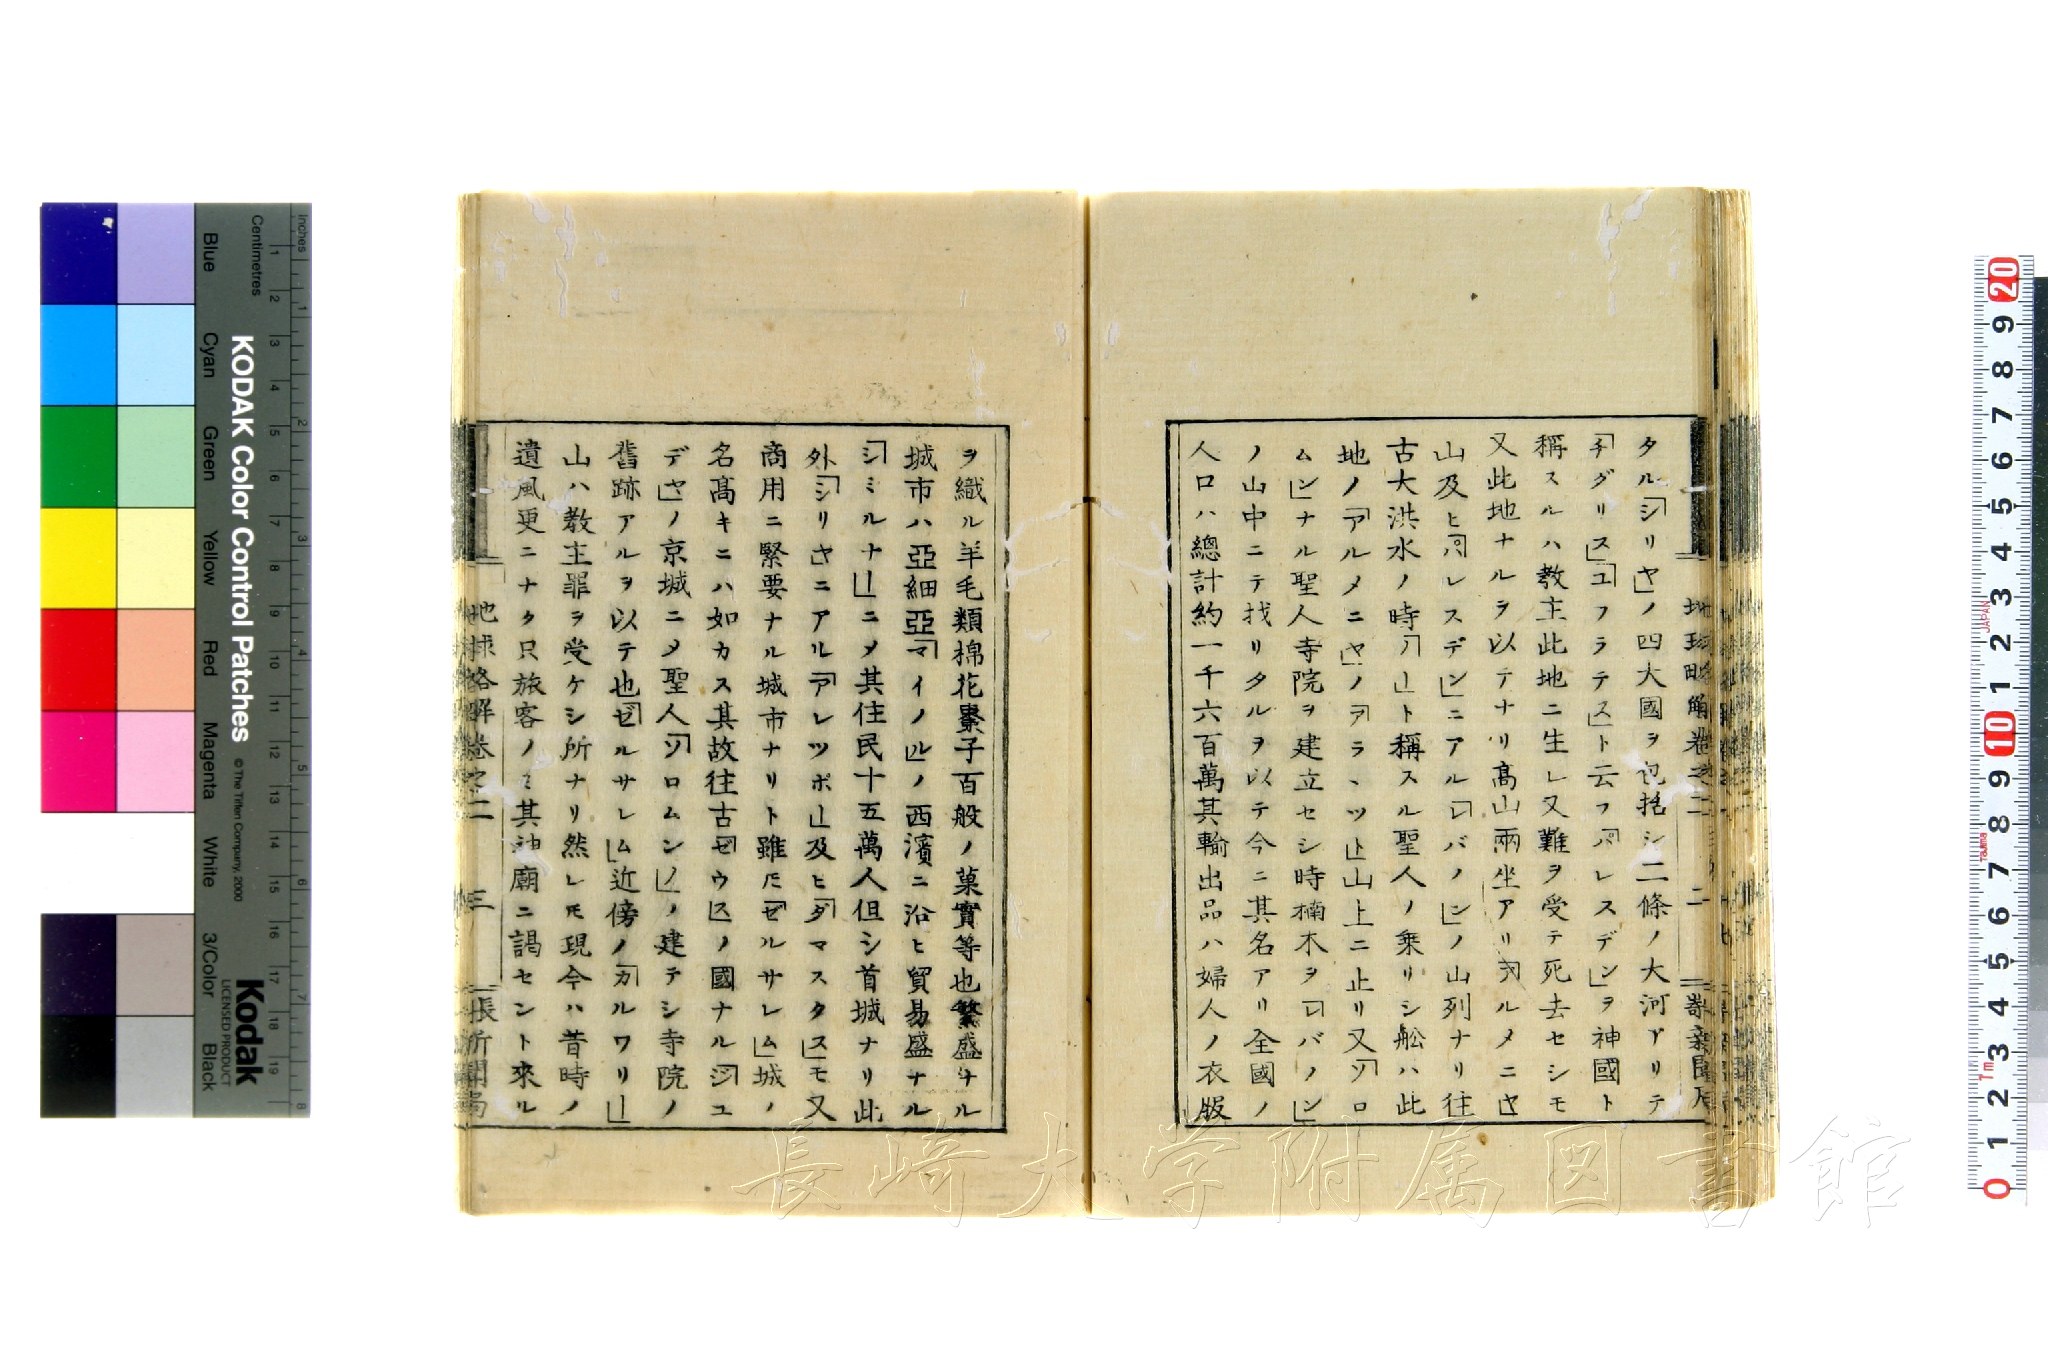 タル「シリヤ」ノ四大國ヲ包括シ二條ノ大河アリテ
「チグリス」「ユフラテス」ト云フ「パレスデン」ヲ神國ト
稱スルハ教主此地ニ生レ又難ヲ受テ死去セシモ
又此地ナルヲ以テナリ高山兩坐アリ「アルメニヤ」
山及ヒ「パレスデン」ニアル「レバノン」ノ山列ナリ往
古大洪水ノ時「ノー」ト稱スル聖人ノ乘リシ舩ハ此
地ノ「アルメニヤ」ノ「アララツト」山上ニ止リ又「ソロ
ムン」ナル聖人寺院ヲ建立セシ時楠木ヲ「レバノン」
ノ山中ニテ找リタルヲ以テ今ニ其名アリ全國ノ
人口ハ總計約一千六百萬其輸出品ハ婦人ノ衣服
ヲ織ル羊毛類棉花棗子百般ノ菓實等也繁盛ナル
城市ハ亞細亞「マイノル」ノ西濱ニ沿ヒ貿易盛ナル
「シミルナー」ニメ其住民十五萬人但シ首城ナリ此
外「シリヤ」ニアル「アレツポー」及ヒ「ダマスタス」モ又
商用ニ緊要ナル城市ナリト雖𪜈「ゼルサレム」城ノ
名高キニハ如カス其故往古「ゼウス」ノ國ナル「ジユ
デヤ」ノ京城ニメ聖人「ソロムン」ノ建テシ寺院ノ
舊跡アルヲ以テ也「ゼルサレム」近傍ノ「カルワリー」
山ハ教主罪ヲ受ケシ所ナリ然レ𪜈現今ハ昔時ノ
遺風更ニナク只旅客ノミ其神廟ニ謁セント來ル
地球略解卷之二 三
KODAK Color Control Patches
© The Tiffen Company, 2000
Kodak
LICENSED PRODUCT
Inches
Centimetres
Blue Cyan Green Yellow Red Magenta White 3/Color Black
長崎大学附属図書館